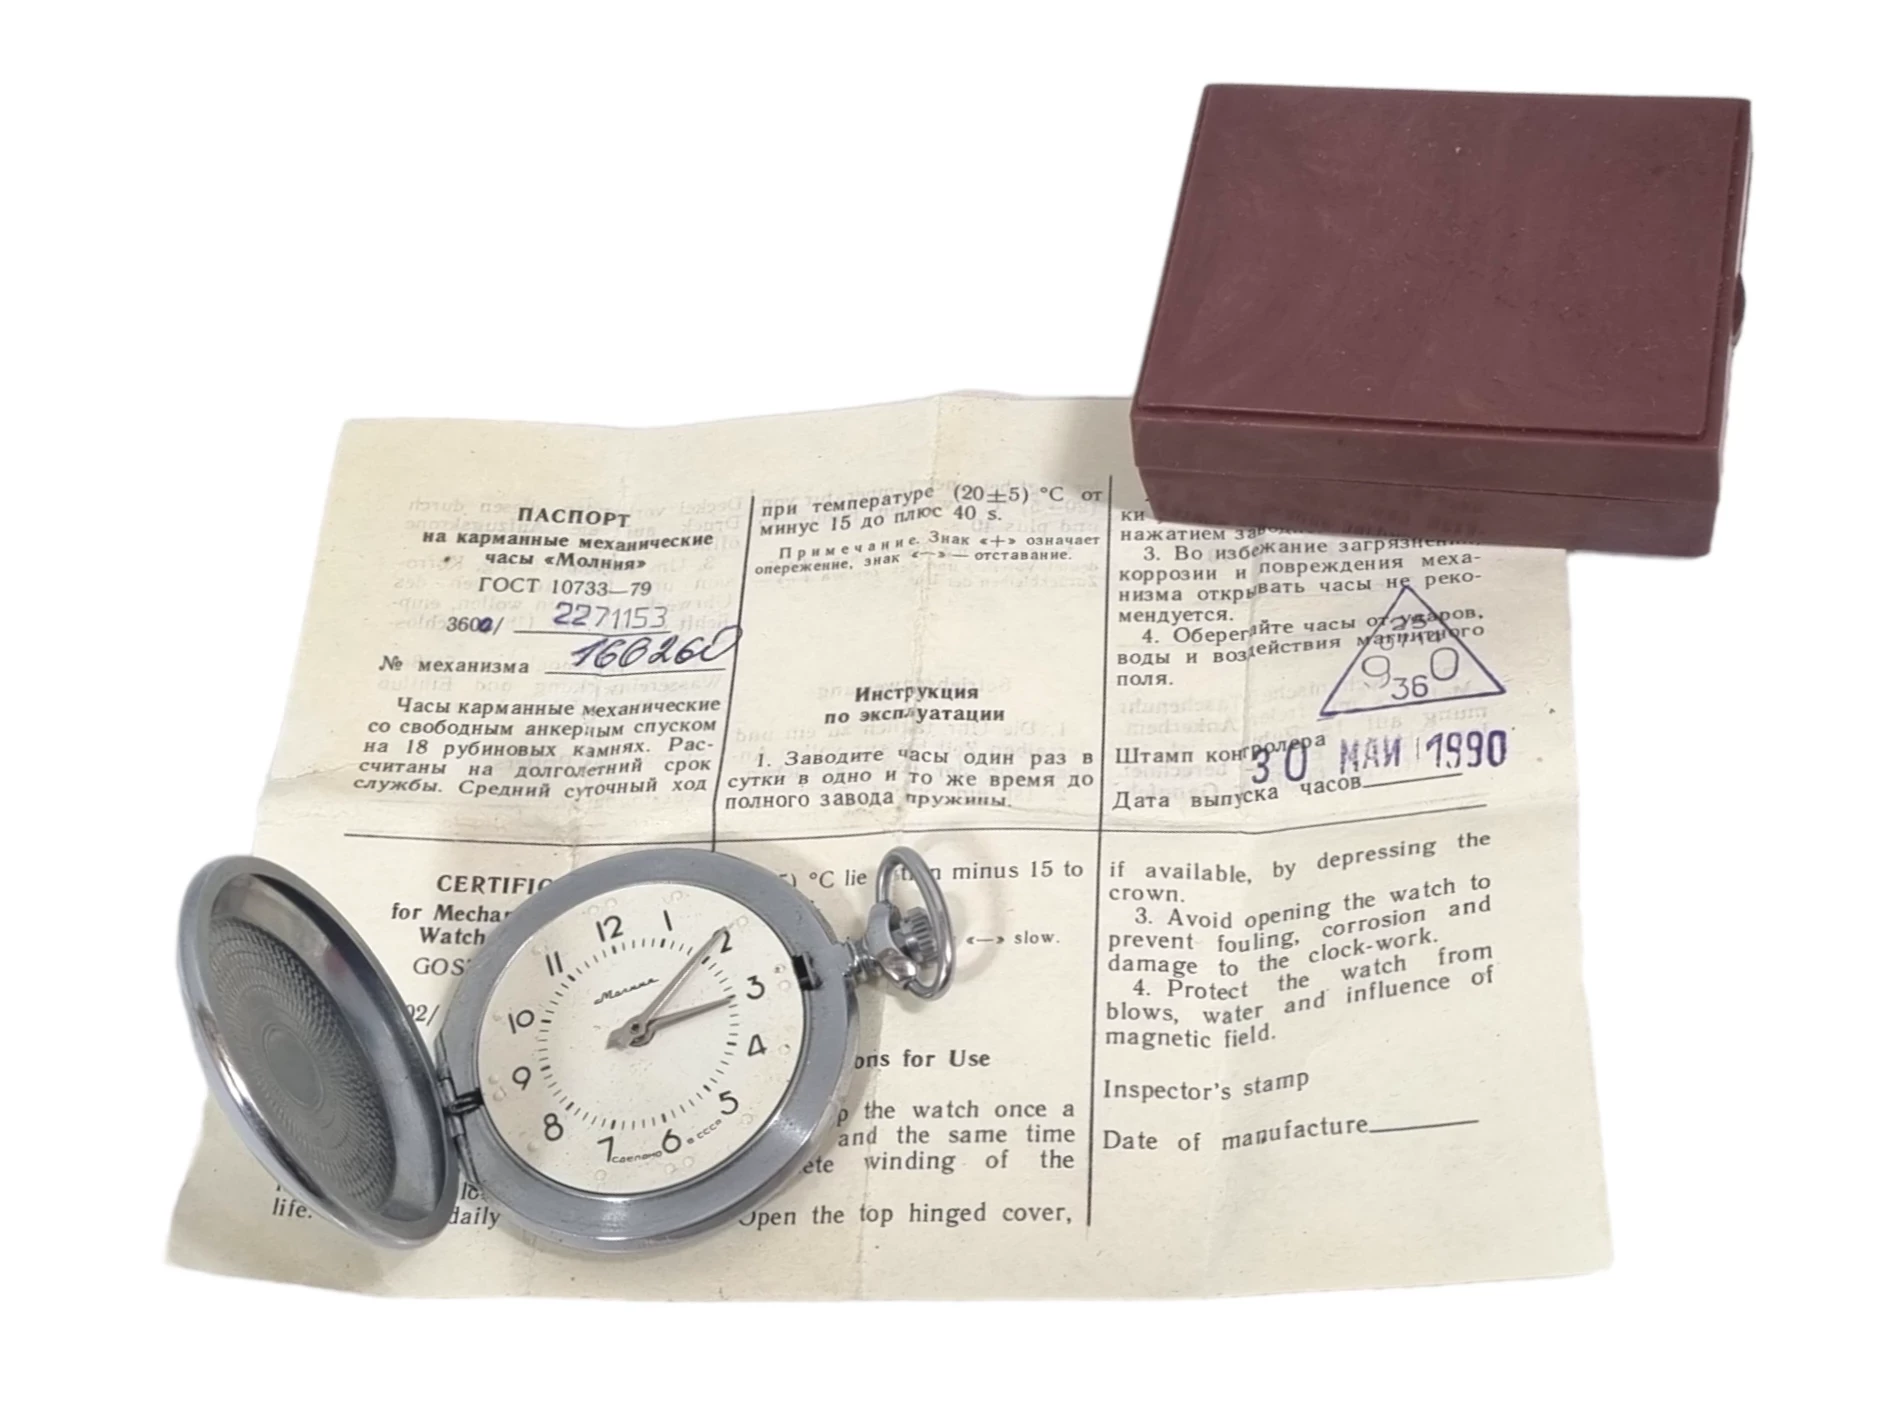 ПАСПОРТ
на карманные механические
часы «Молния»
ГОСТ 10733—79
3602/ 2271153
№ механизма 160260
Часы карманные механические
со свободным анкерным спуском
на 18 рубиновых камнях. Рас-
считаны на долголетний срок
службы. Средний суточный ход
при температуре (20±5) °C от
минус 15 до плюс 40 s.
Примечание. Знак «+» означает
опережение, знак «—» — отставание.
Инструкция
по эксплуатации
1. Заводите часы один раз в
сутки в одно и то же время до
полного завода пружины.
ки
нажатием
3. Во избежание
коррозии и повреждения меха-
низма открывать часы не реко-
мендуется.
4. Оберегайте часы от ударов,
воды и воздействия магнитного
поля.
9 0
36
Штамп контролера
30 МАЙ 1990
Дата выпуска часов
for
Watch
life.
daily
°C lie minus 15 to
«—» slow.
for Use
the watch once a
and the same time
winding of the
Open the top hinged cover,
if available, by depressing the
crown.
3. Avoid opening the watch to
prevent fouling, corrosion and
damage to the clock-work.
4. Protect the watch from
blows, water and influence of
magnetic field.
Inspector's stamp
Date of manufacture
12
1
2
3
4
5
6
7
8
9
10
11
Молния
Сделано в СССР